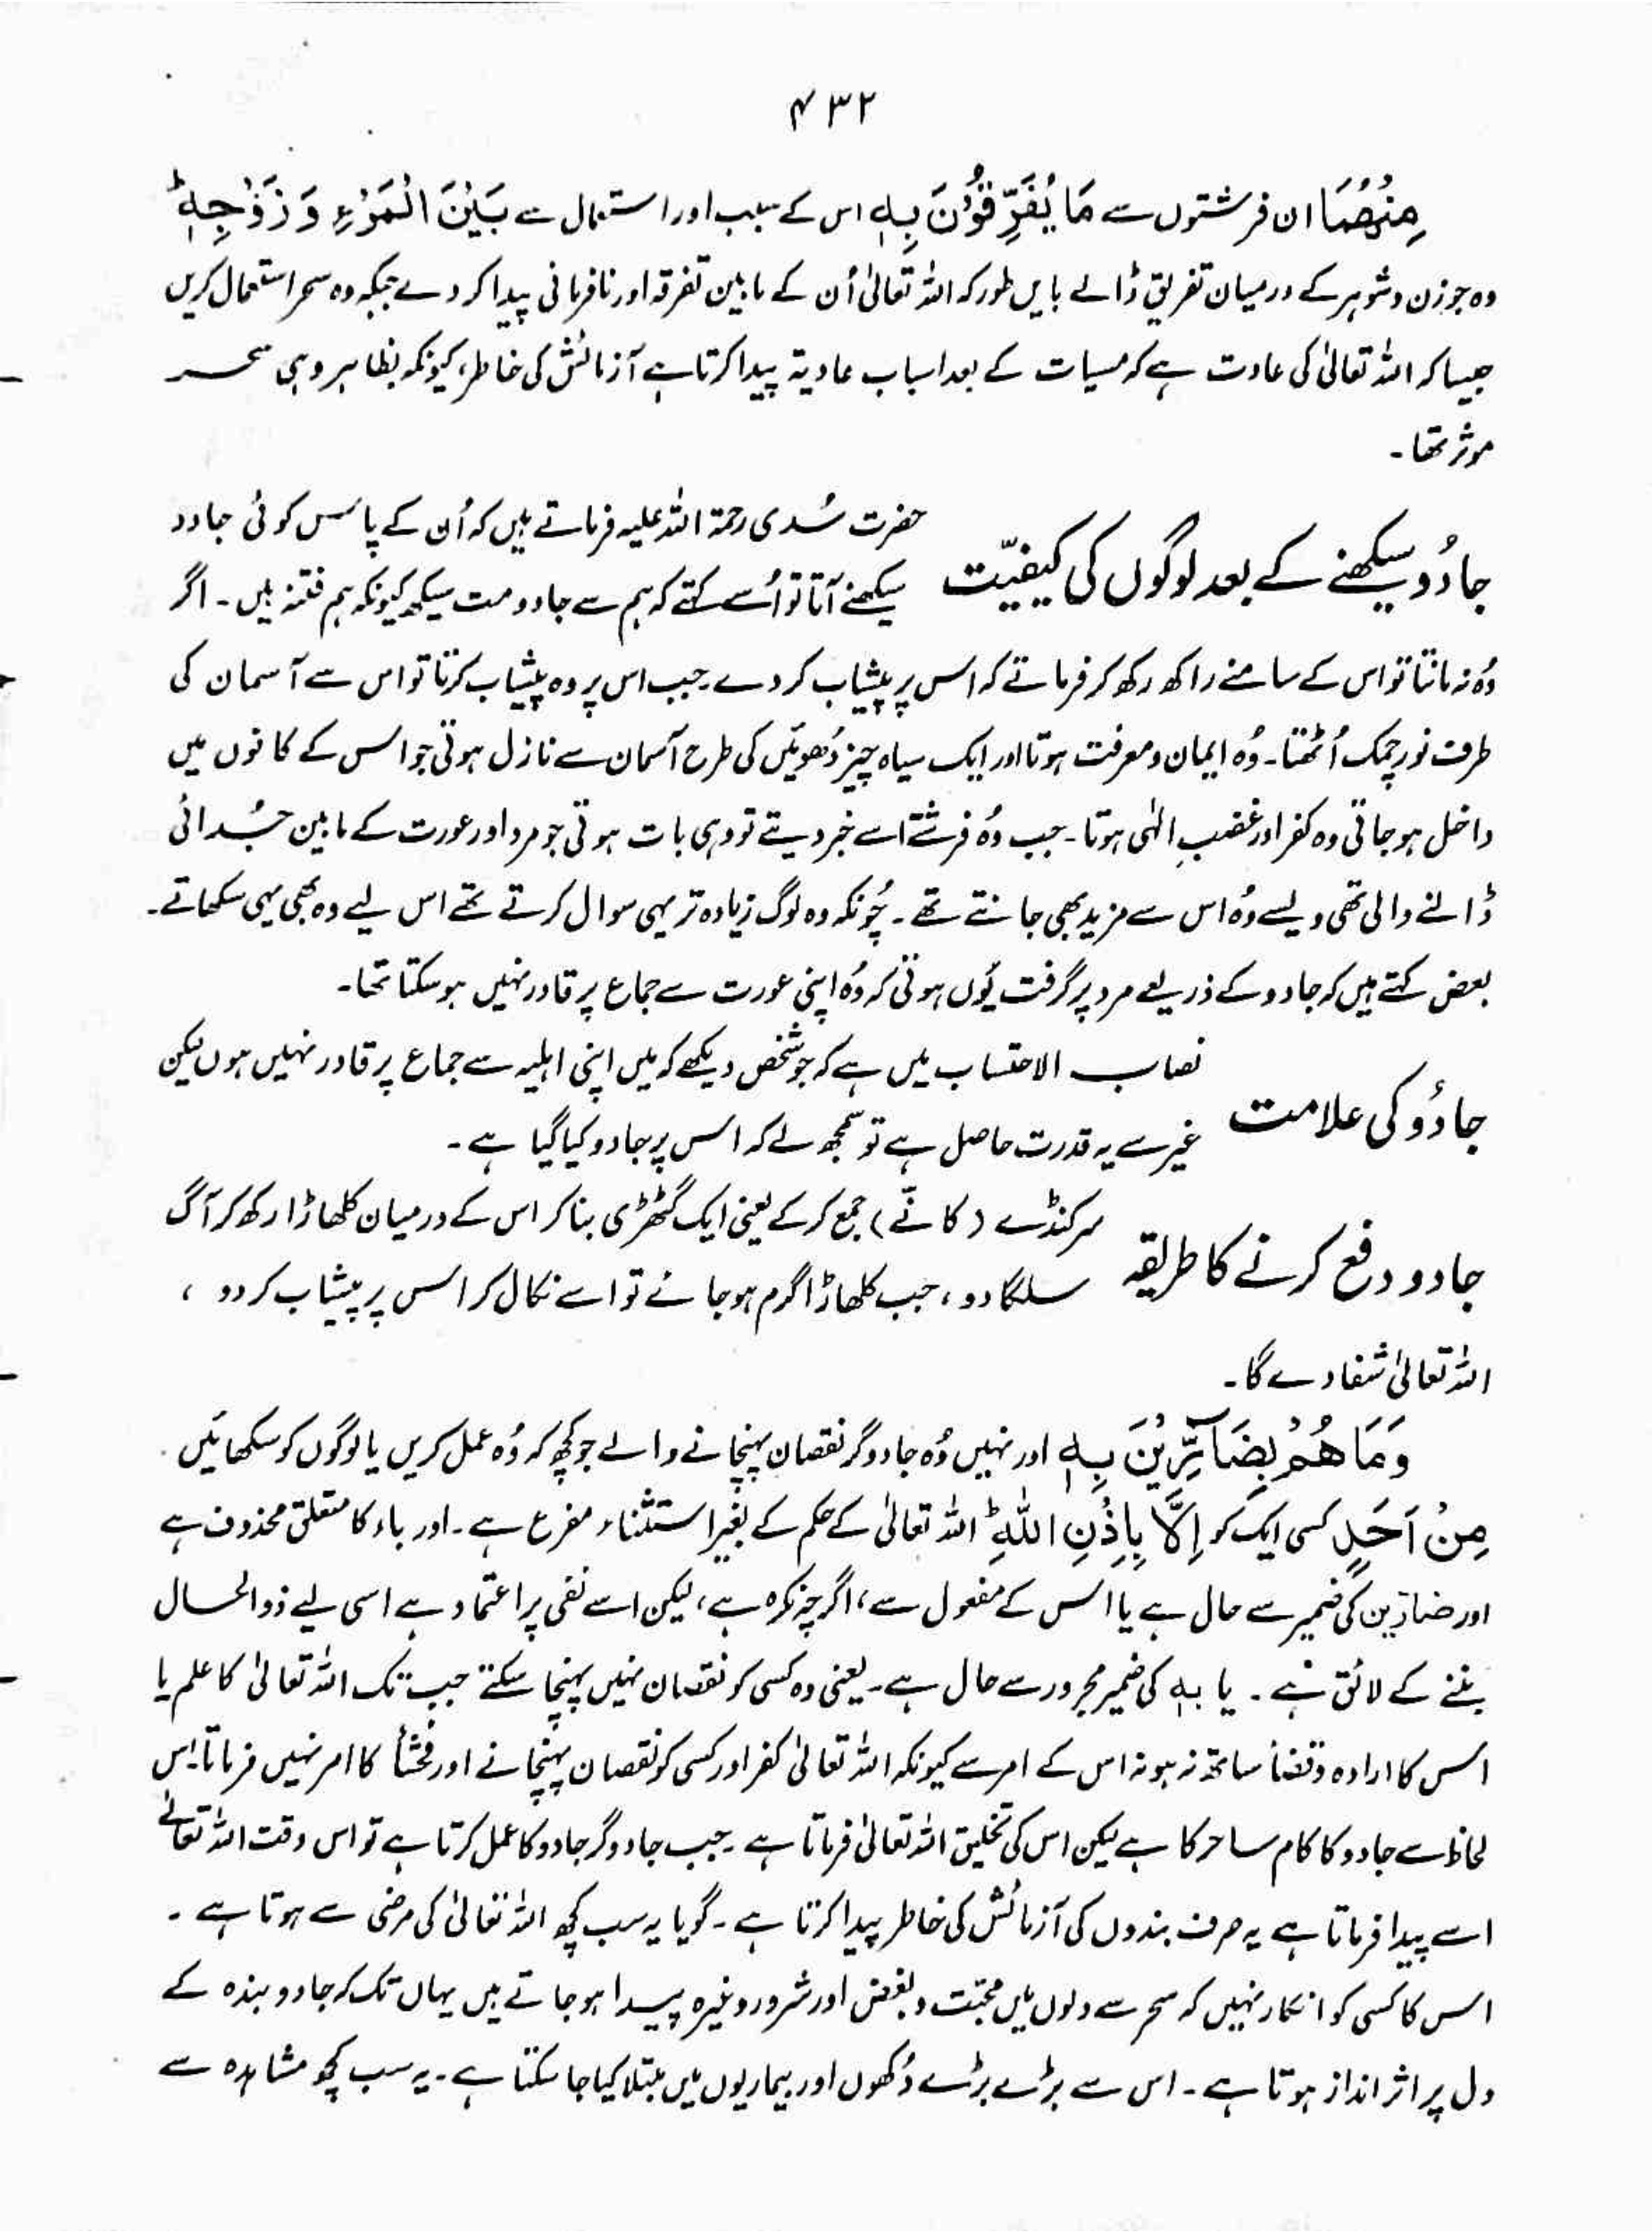 ۴۳۲
مِنْھُمَا ان فرشتوں سے مَا یُفَرِّقُوْنَ بِہٖ اس کے سبب اور استعمال سے بَیْنَ الْمَرْءِ وَ زَوْجِہٖ ؕ
وہ جو زن و شوہر کے درمیان تفریق ڈالے بایں طور کہ اللہ تعالیٰ اُن کے مابین تفرقہ اور نافرمانی پیدا کر دے جبکہ وہ سحر استعمال کریں
جیسا کہ اللہ تعالیٰ کی عادت ہے کہ مسبات کے بعد اسباب عادیۃ پیدا کرتا ہے آزمائش کی خاطر، کیونکہ بظاہر وہی سحر
موثر تھا۔
جادُو سیکھنے کے بعد لوگوں کی کیفیّت
حضرت سُدی رحمۃ اللہ علیہ فرماتے ہیں کہ اُن کے پاس کوئی جادو
سیکھنے آتا تو اُسے کہتے کہ ہم سے جادو مت سیکھ کیونکہ ہم فتنہ ہیں۔ اگر
وُہ نہ مانتا تو اس کے سامنے راکھ رکھ کر فرماتے کہ اس پر پیشاب کر دے۔ جب اس پر وہ پیشاب کرتا تو اس سے آسمان کی
طرف نور چمک اُٹھتا۔ وُہ ایمان و معرفت ہوتا اور ایک سیاہ چیز دُھوئیں کی طرح آسمان سے نازل ہوتی جو اس کے کانوں میں
داخل ہو جاتی وہ کفر اور غضبِ الٰہی ہوتا۔ جب وُہ فرشتے اسے خبر دیتے تو وہی بات ہوتی جو مرد اور عورت کے مابین جُدائی
ڈالنے والی تھی ویسے وُہ اس سے مزید بھی جانتے تھے۔ چُونکہ وہ لوگ زیادہ تر یہی سوال کرتے تھے اس لیے وہ بھی یہی سکھاتے۔
بعض کہتے ہیں کہ جادو کے ذریعے مرد پر گرفت یُوں ہوتی کہ وُہ اپنی عورت سے جماع پر قادر نہیں ہو سکتا تھا۔
جادُو کی علامت
نصاب الاحتساب میں ہے کہ جو شخص دیکھے کہ میں اپنی اہلیہ سے جماع پر قادر نہیں ہوں لیکن
غیر سے یہ قدرت حاصل ہے تو سمجھ لے کہ اس پر جادو کیا گیا ہے۔
جادو دفع کرنے کا طریقہ
سرکنڈے (کانّے) جمع کر کے یعنی ایک گٹھڑی بنا کر اس کے درمیان کلھاڑا رکھ کر آگ
سلگا دو، جب کلھاڑا گرم ہو جائے تو اسے نکال کر اس پر پیشاب کر دو ،
اللہ تعالیٰ شفا دے گا۔
وَمَا ھُمْ بِضَآرِّیْنَ بِہٖ اور نہیں وُہ جادوگر نقصان پہنچانے والے جو کچھ کہ وُہ عمل کریں یا لوگوں کو سکھائیں۔
مِنْ اَحَدٍ کسی ایک کو اِلَّا بِاِذْنِ اللّٰہِ ؕ اللہ تعالیٰ کے حکم کے بغیر استثناء مفرع ہے۔ اور باء کا متعلق محذوف ہے
اور ضارّین کی ضمیر سے حال ہے یا اس کے مفعول سے، اگرچہ نکرہ ہے، لیکن اسے نفی پر اعتماد ہے اسی لیے ذوالحال
بننے کے لائق ہے۔ یا بہٖ کی ضمیر مجرور سے حال ہے۔ یعنی وہ کسی کو نقصان نہیں پہنچا سکتے جب تک اللہ تعالیٰ کا علم یا
اس کا ارادہ و قضأ ساتھ نہ ہو نہ اس کے امر سے کیونکہ اللہ تعالیٰ کفر اور کسی کو نقصان پہنچانے اور فحشأ کا امر نہیں فرماتا۔ اس
لحاظ سے جادو کا کام ساحر کا ہے لیکن اس کی تخلیق اللہ تعالیٰ فرماتا ہے۔ جب جادوگر جادو کا عمل کرتا ہے تو اس وقت اللہ تعالےٰ
اسے پیدا فرماتا ہے یہ صرف بندوں کی آزمائش کی خاطر پیدا کرتا ہے۔ گویا یہ سب کچھ اللہ تعالیٰ کی مرضی سے ہوتا ہے۔
اس کا کسی کو انکار نہیں کہ سحر سے دلوں میں محبّت و بغض اور شرور وغیرہ پیدا ہو جاتے ہیں یہاں تک کہ جادو بندہ کے
دل پر اثر انداز ہوتا ہے۔ اس سے بڑے بڑے دُکھوں اور بیماریوں میں مبتلا کیا جا سکتا ہے۔ یہ سب کچھ مشاہدہ سے